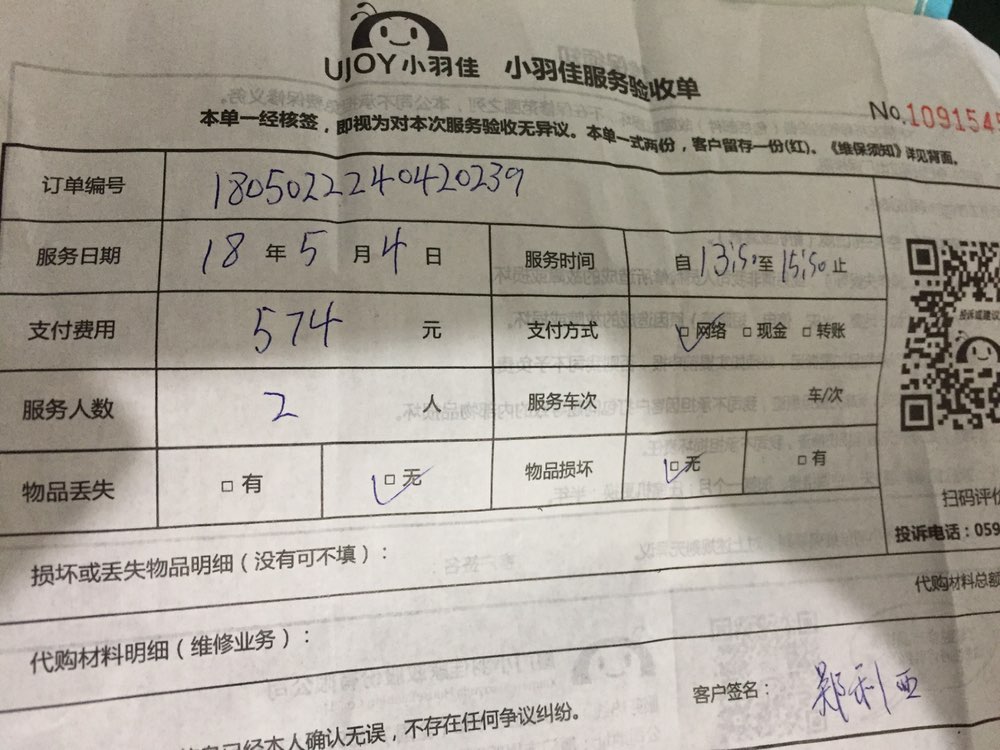 UJOY小羽佳 小羽佳服务验收单
No.109154
本单一经核签，即视为对本次服务验收无异议。本单一式两份，客户留存一份(红)。《维保须知》详见背面。
订单编号 1805022240420239
服务日期 18 年 5 月 4 日 服务时间 自 13:50 至 15:50 止
支付费用 574 元 支付方式 □网络 □现金 □转账
投诉或建议
服务人数 2 人 服务车次 车/次
物品丢失 □有 □无 物品损坏 □无 □有
扫码评价
投诉电话：059
损坏或丢失物品明细（没有可不填）：
代购材料总额
代购材料明细（维修业务）：
客户签名：郑利西
已经本人确认无误，不存在任何争议纠纷。